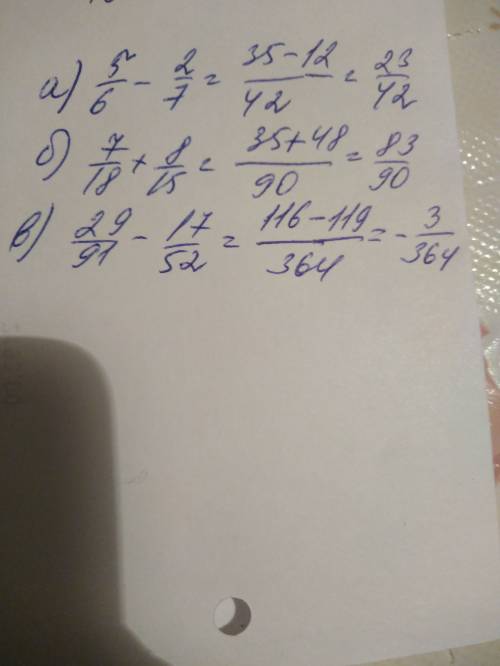 а) 5/6 - 2/7 = 35-12/42 = 23/42
б) 7/18 + 8/15 = 35+48/90 = 83/90
в) 29/91 - 17/52 = 116-119/364 = -3/364